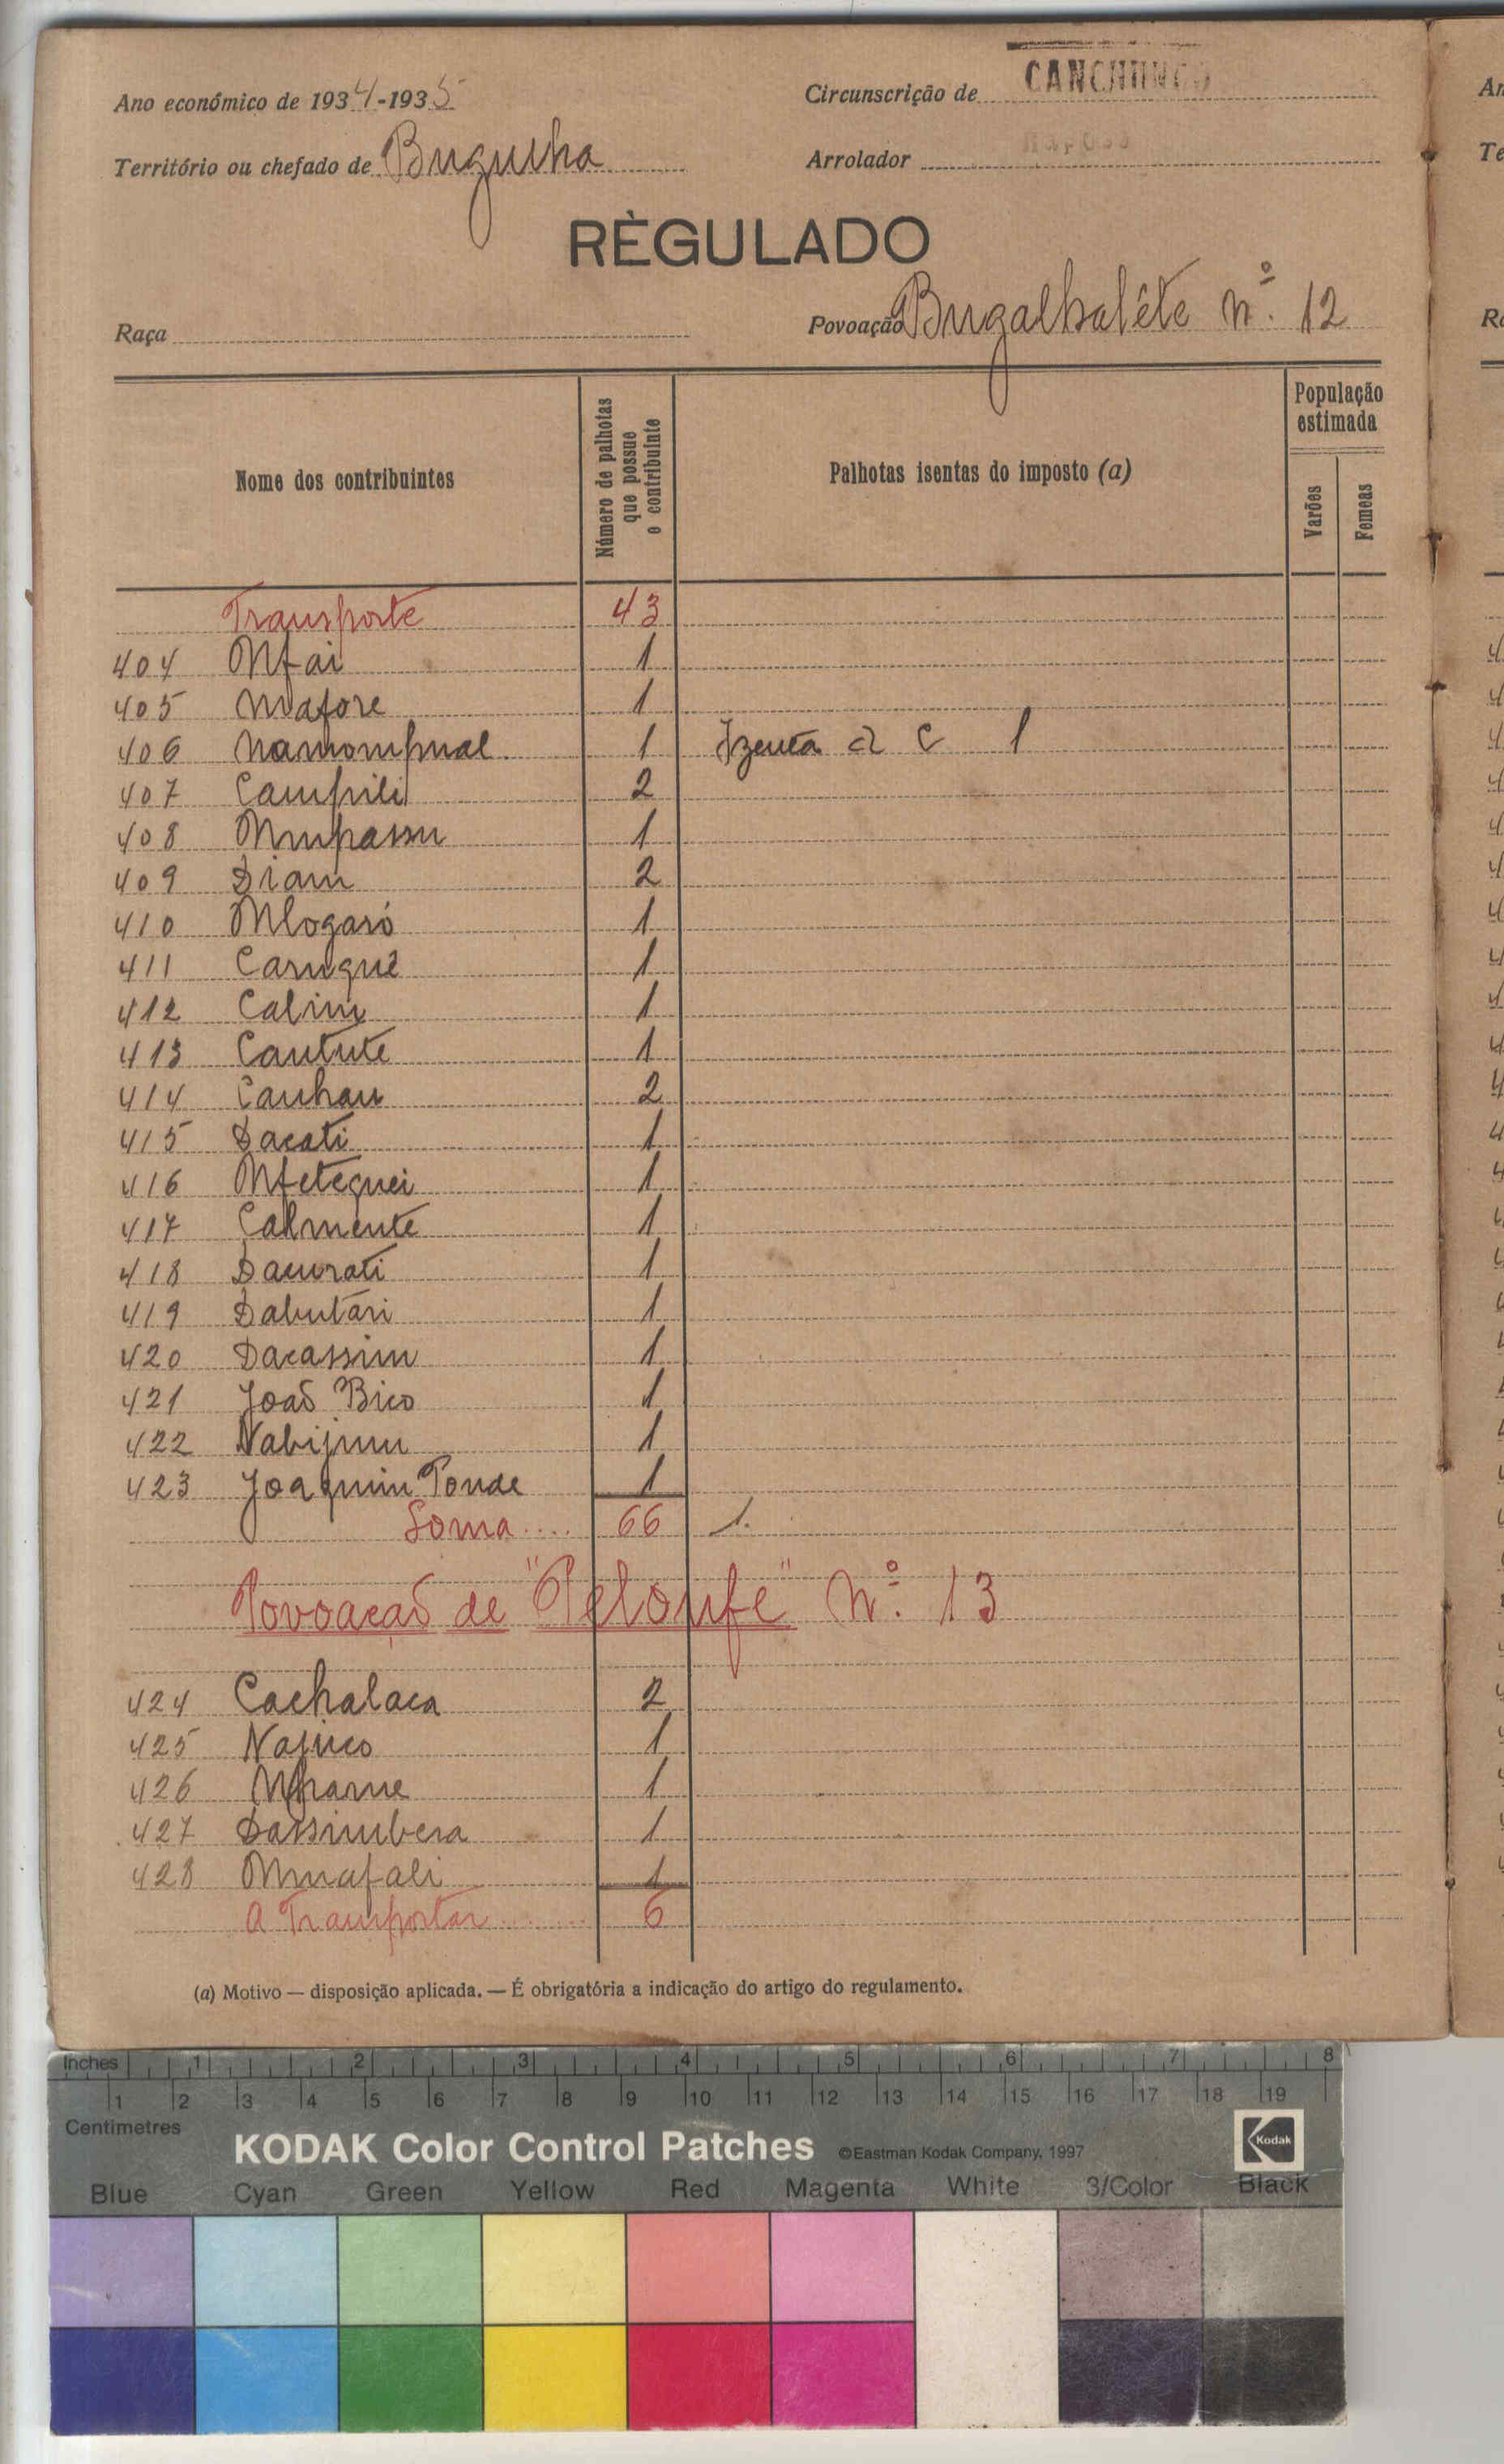 Ano económico de 1934-1935
Circunscrição de CANCHUNGO
Território ou chefado de Bugulha
Arrolador
RÈGULADO
Raça
Povoação Bugalhaléte nº. 12
Nome dos contribuintes
Número de palhotas que possue o contribuinte
Palhotas isentas do imposto (a)
População estimada
Varões
Femeas
Transporte 43
404 Mfai 1
405 Mafore 1
406 Namompual 1 Izenta a c 1
407 Campili 2
408 Mupassu 1
409 Diam 2
410 Mlogaró 1
411 Carugué 1
412 Calim 1
413 Cautute 1
414 Cauhau 2
415 Dacati 1
416 Mfeteguei 1
417 Calmente 1
418 Dacurati 1
419 Dabutari 1
420 Dacassim 1
421 João Bico 1
422 Nabijum 1
423 Joaquim Ponde 1
Soma .... 66 1.
Povoação de "Pelonfe" Nº. 13
424 Cachalaca 2
425 Najuco 1
426 1
427 Dassimbera 1
428 Mnafali 1
A Transportar ....... 6
(a) Motivo — disposição aplicada. — É obrigatória a indicação do artigo do regulamento.
Inches 1 2 3 4 5 6 7 8
1 2 3 4 5 6 7 8 9 10 11 12 13 14 15 16 17 18 19
Centimetres
KODAK Color Control Patches ©Eastman Kodak Company, 1997 Kodak
Blue Cyan Green Yellow Red Magenta White 3/Color Black